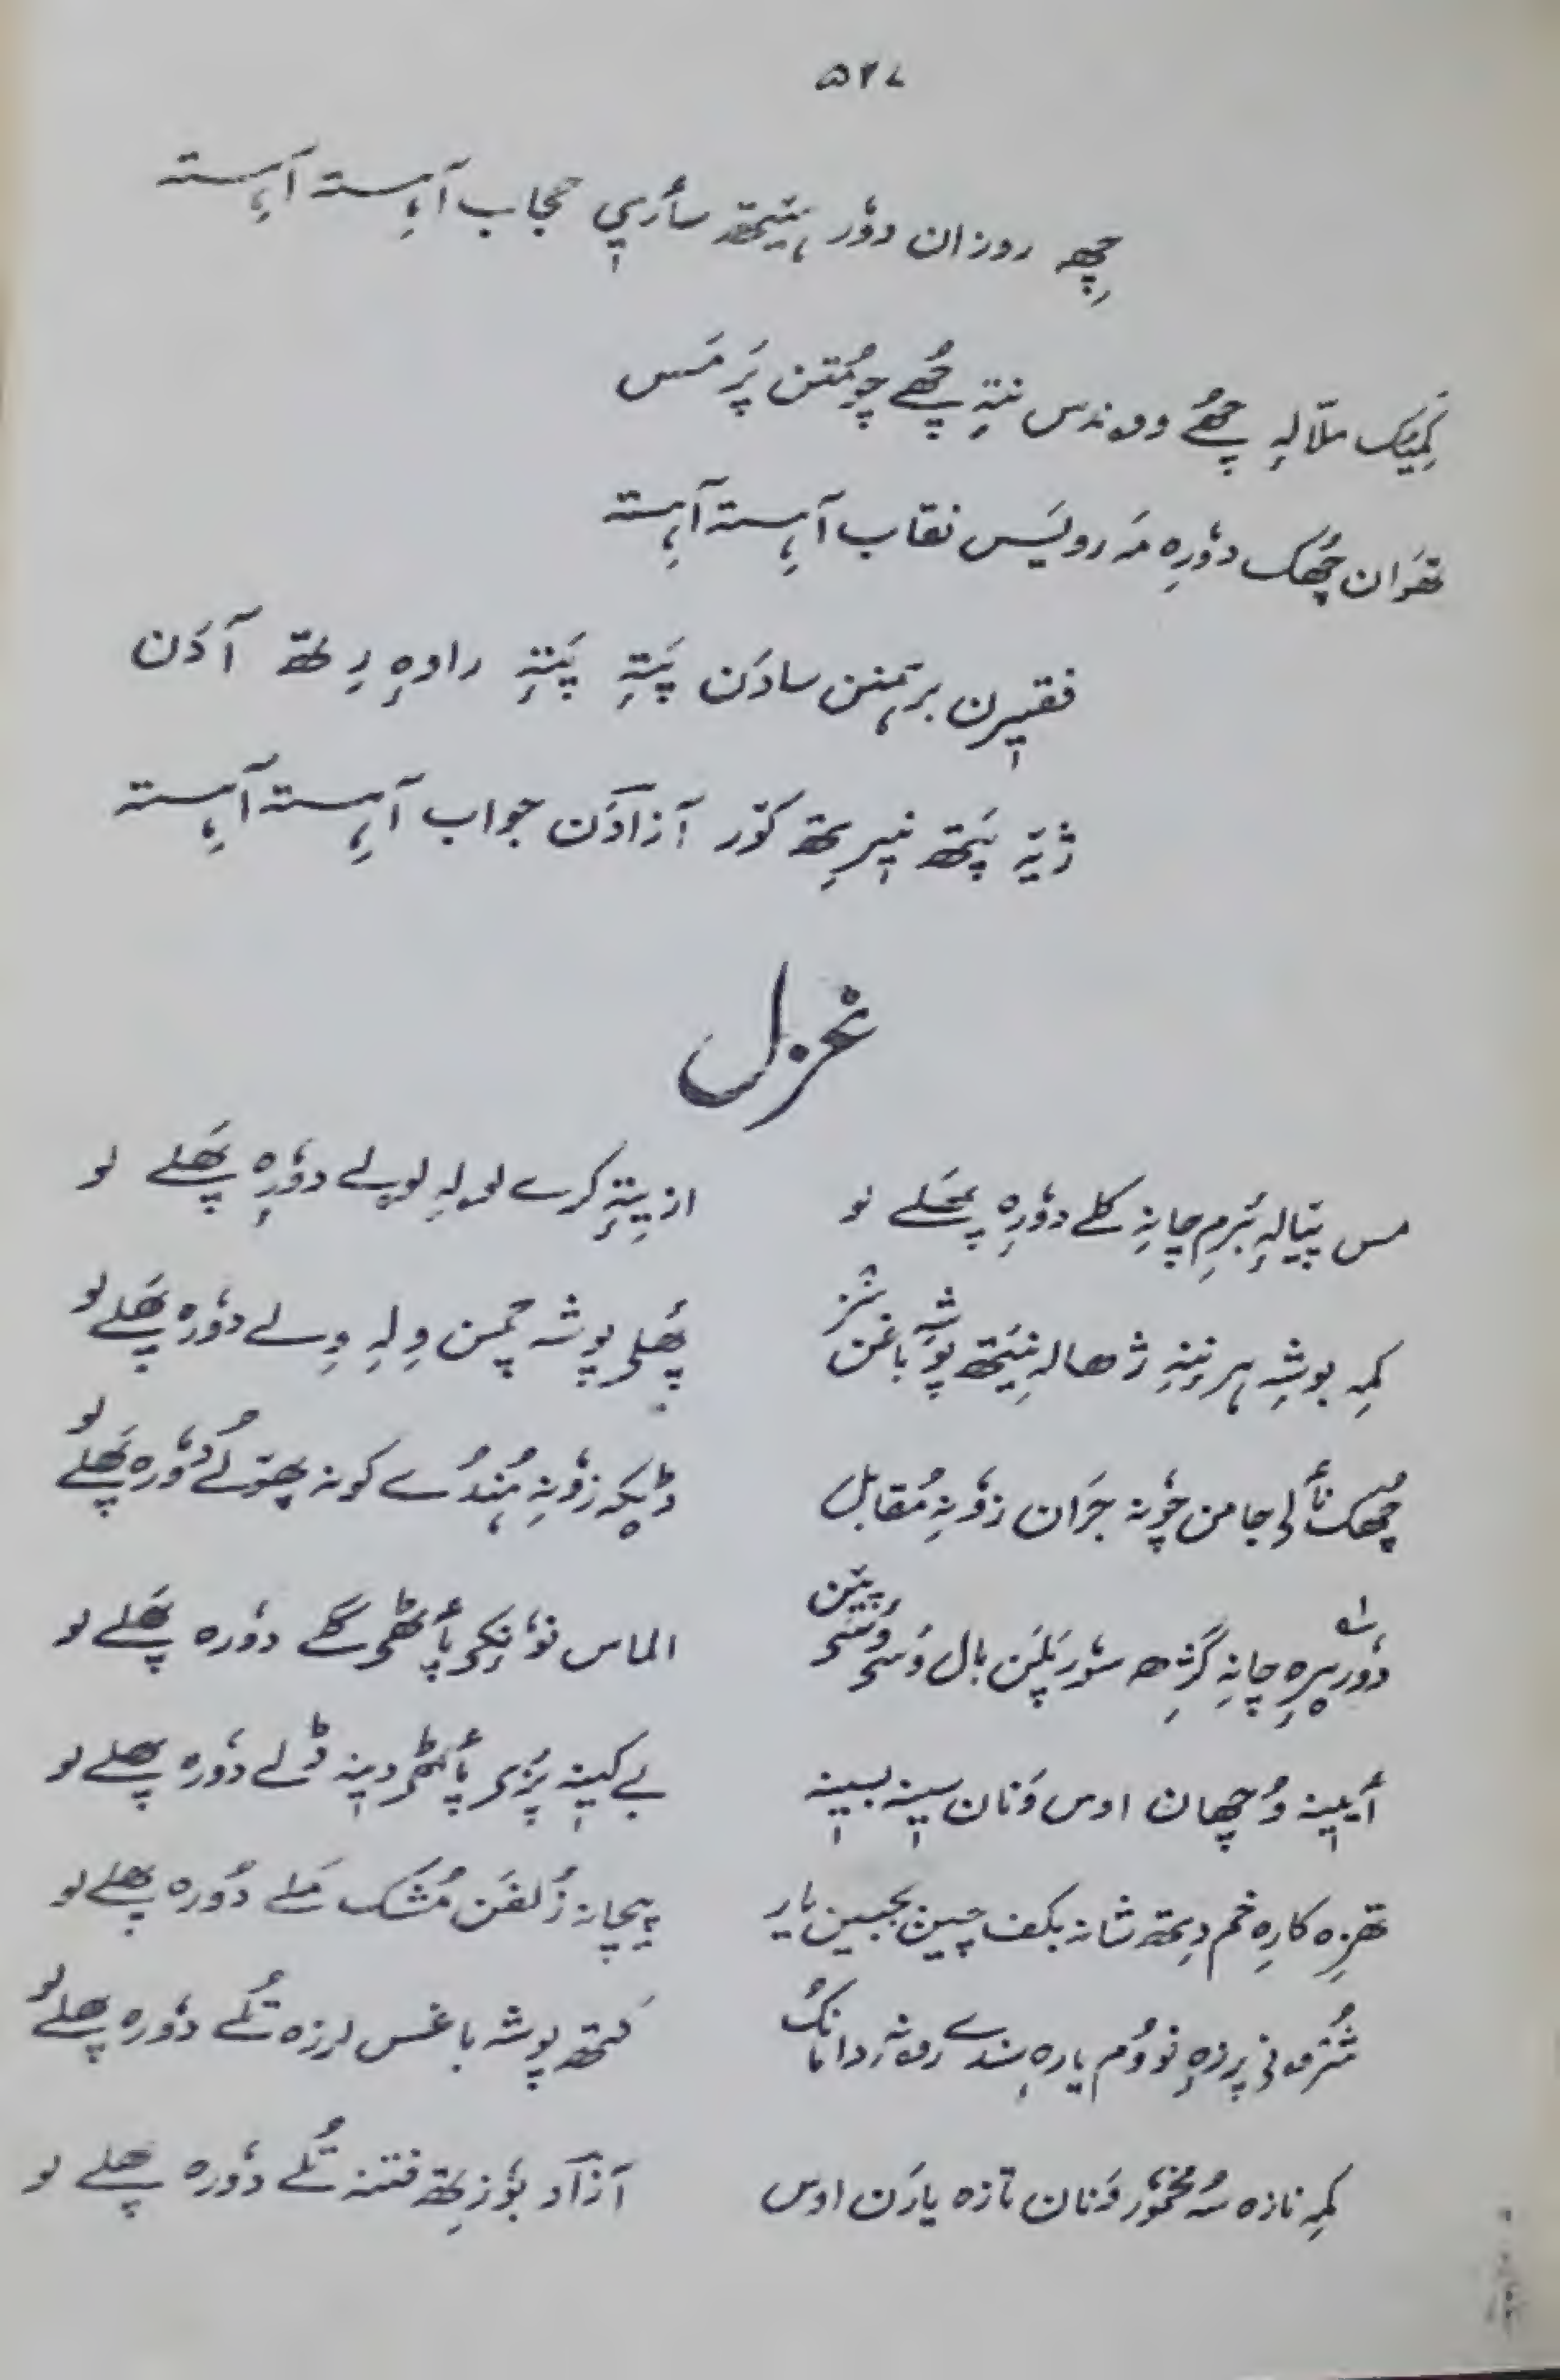 ۵۲۷
چھِ روزان دوٗر ہیٚتھ سأری حجاب آہِستہ آہِستہ
کَمِیُک ملالہِ چھُے ووندس نتہِ چھُے چومُتن پَر مَس
تھَوان چھُک دوٗرِہ مَہ رویَس نقاب آہِستہ آہِستہ
فقیرن برہمنن سادَن پَتہِ پَتہِ راوہِ رِ لتھہٕ آدَن
ژیہٕ پَتھ نیرِتھ کوٚر آزادَن جواب آہِستہ آہِستہ
غزل
مس پیالہِ بَرم چانہِ کلے دوٗرِہ پھَلے لو
از یتہِ کرے لولہِ لولے دوٗرِہ پھَلے لو
کمہِ بوشہِ ہرنِنہِ ژھالہِ نِیَتھ پوشہِ باغن منز
پھُلی پوشہ چمن وِلہِ وِلے دوٗرہ پھَلے لو
چھُک نألی جامن چوٗنہ جَران زوٗنہِ مُقابل
ڈیکہ زوٗنہِ ہُندُے کونہ چھتوٗلے دوٗرہ پھَلے لو
دوٗریرہِ چانہِ گژِھہ سوٗر بَلہٕ بال وَسی وَسی پیَن
الماس نوٗنِکی پأٹھی گلے دوٗرہ پھَلے لو
أیینہ وُچھان اوس وَنان سینہ بسینہ
بے کینہ پَزی پأٹھی دینہ ڈلے دوٗرہ پھلے لو
تھزِہ کارِہ خم دِتھ شانہ بکف چین بجبین یار
پیچانہ زُلفَن مُشک مَلے دوٗرہ پھلے لو
کَتھ پوشہ باغس لرزہ تُلے دوٗرہ پھلے لو
کمہِ نازہ سُہ مخموٗر وَنان تازہ یارَن اوس
آزاد بوٗزِتھ فتنہ تُلے دوٗرہ پھلے لو